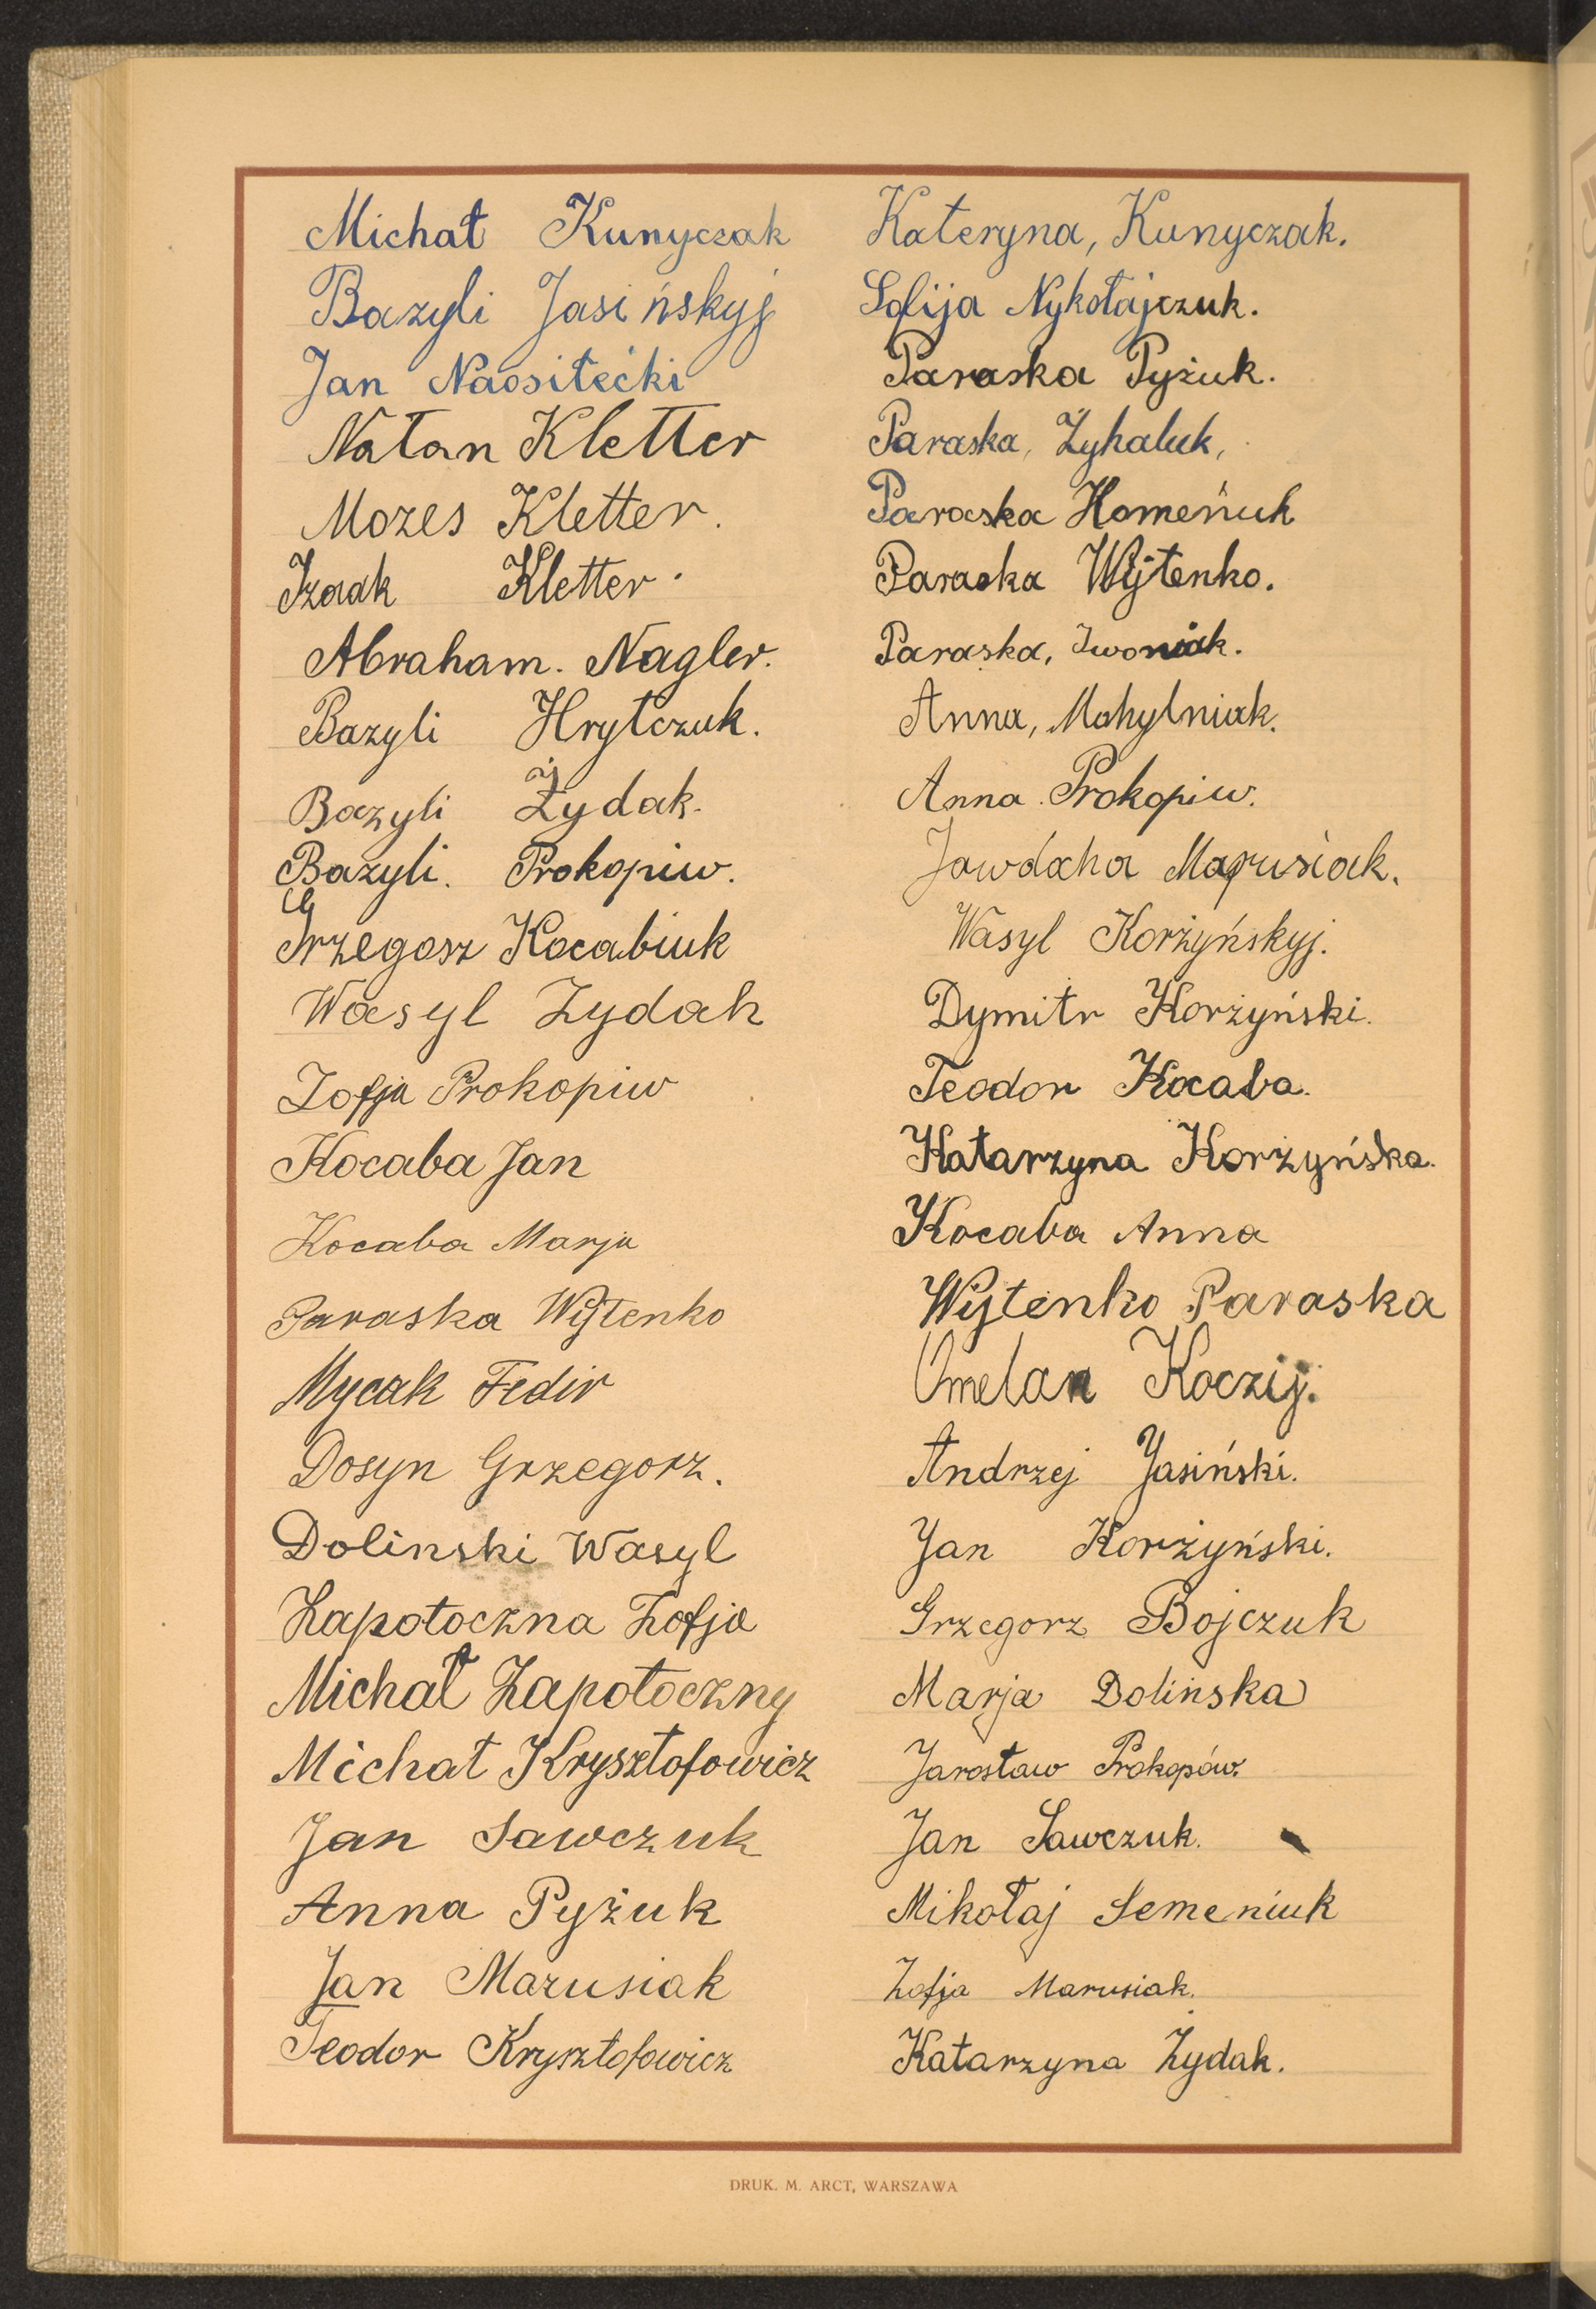 Michał Kunyczak
Bazyli Jasińskyj
Jan
Natan Kletter
Mozes Kletter.
Izaak Kletter.
Abraham. Nagler.
Bazyli Hrytczuk.
Bazyli Żydak.
Bazyli. Prokopiw.
Grzegosz Kocabiuk
Wasyl Zydak
Zofja Prokopiw
Kocaba Jan
Kocaba Marja
Paraska Wijtenko
Mycak Fedir
Dosyn Grzegorz.
Dolinski Wasyl
Zapotoczna Zofja
Michał Zapotoczny
Michał Krysztofowicz
Jan Sawczuk
Anna Pyżuk
Jan Marusiak
Teodor Krysztofowicz
Kateryna, Kunyczak.
Sofija Nykołajczuk.
Paraska Pyżuk.
Paraska, Zyhaluk,
Paraska Homeńuk
Paraska Wijtenko.
Paraska, Iwoniak.
Anna, Mohylniak.
Anna Prokopiw.
Jawdocha Marusiak.
Wasyl Korżyńskyj.
Dymitr Korżyński.
Teodor Kocaba.
Katarzyna Korżyńska.
Kocaba Anna
Wijtenko Paraska
Omelan Koczij.
Andrzej Jasiński.
Jan Korżyński.
Grzegorz Bojczuk
Marja Dolinska
Jarosław Prokopów.
Jan Sawczuk.
Mikołaj Semeniuk
Zofja Marusiak.
Katarzyna Żydak.
DRUK. M. ARCT, WARSZAWA